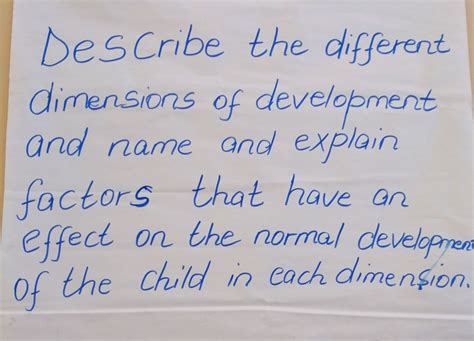 Describe the different
dimensions of development
and name and explain
factors that have an
effect on the normal development
of the child in each dimension.